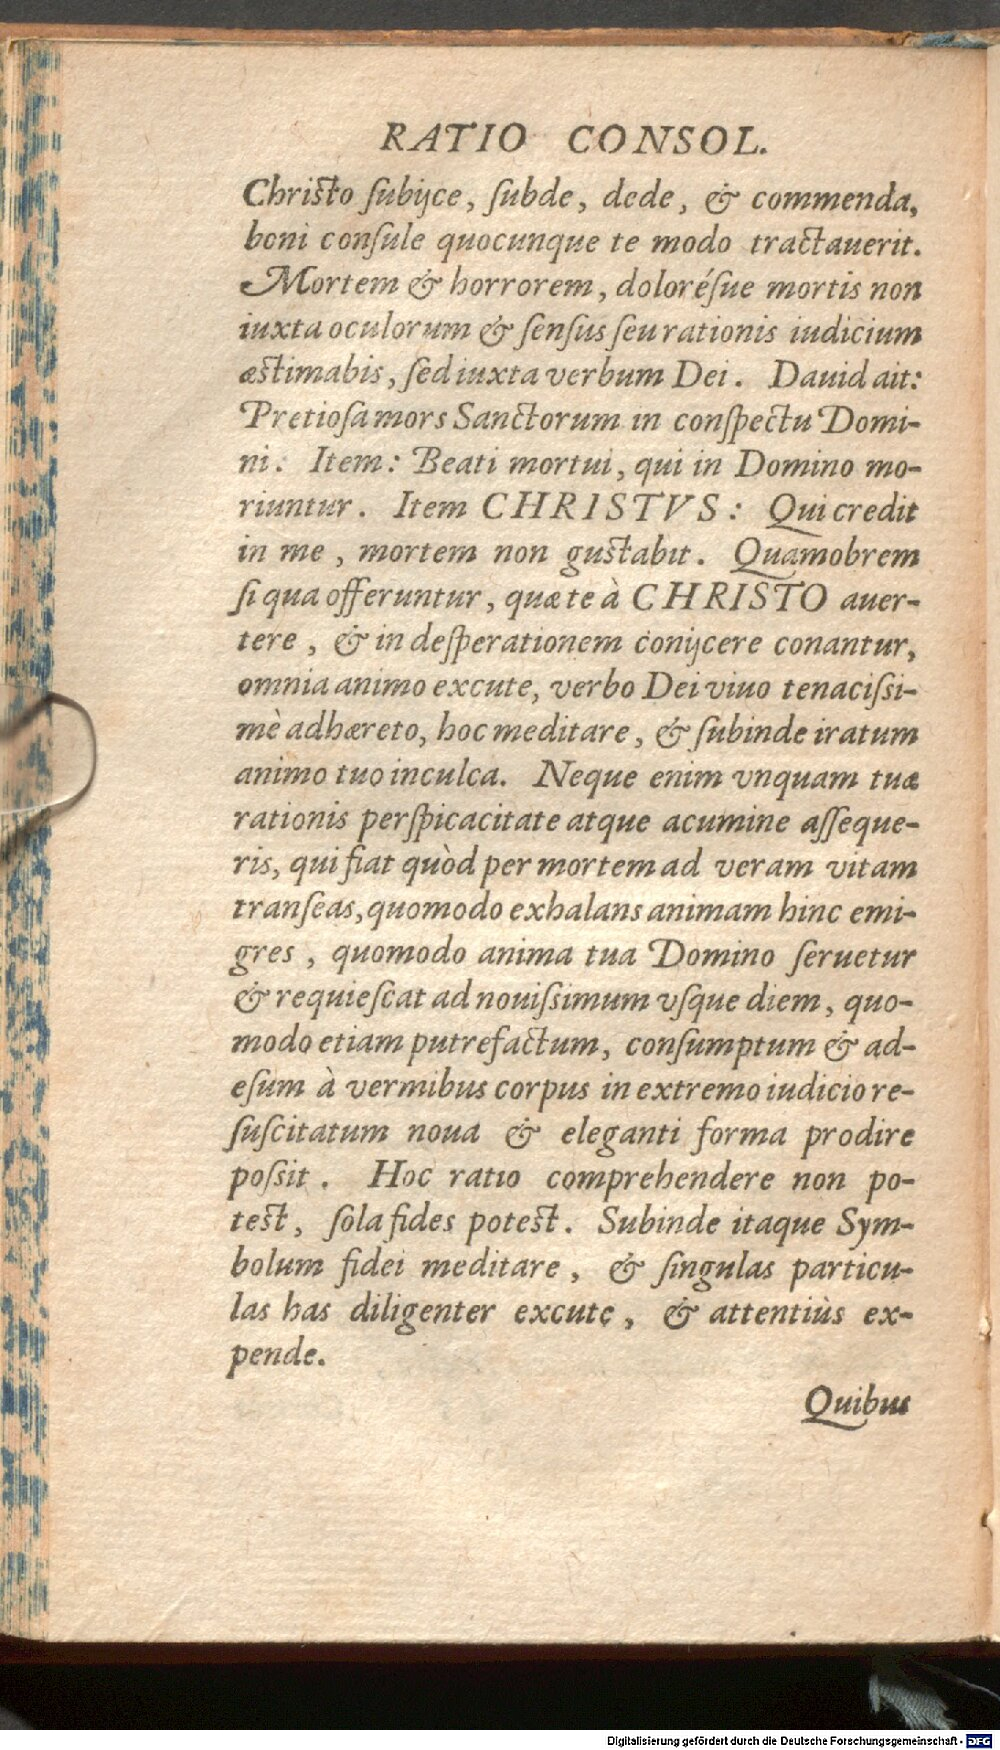 RATIO CONSOL.
Christo ſubijce, ſubde, dede, & commenda,
boni conſule quocunque te modo tractauerit.
Mortem & horrorem, doloréſue mortis non
iuxta oculorum & ſenſus ſeu rationis iudicium
æstimabis, ſed iuxta verbum Dei. Dauid ait:
Pretioſa mors Sanctorum in conſpectu Domi-
ni. Item: Beati mortui, qui in Domino mo-
riuntur. Item CHRISTVS: Qui credit
in me, mortem non gustabit. Quamobrem
ſi qua offeruntur, quæ te à CHRISTO auer-
tere, & in deſperationem conijcere conantur,
omnia animo excute, verbo Dei viuo tenaciſsi-
mè adhæreto, hoc meditare, & ſubinde iratum
animo tuo inculca. Neque enim vnquam tuæ
rationis perſpicacitate atque acumine aſſeque-
ris, qui fiat quòd per mortem ad veram vitam
tranſeas, quomodo exhalans animam hinc emi-
gres, quomodo anima tua Domino ſeruetur
& requieſcat ad nouiſsimum vſque diem, quo-
modo etiam putrefactum, conſumptum & ad-
eſum à vermibus corpus in extremo iudicio re-
ſuſcitatum noua & eleganti forma prodire
poſsit. Hoc ratio comprehendere non po-
test, ſola fides potest. Subinde itaque Sym-
bolum fidei meditare, & ſingulas particu-
las has diligenter excute, & attentiùs ex-
pende.
Quibus
Digitalisierung gefördert durch die Deutsche Forschungsgemeinschaft - DFG